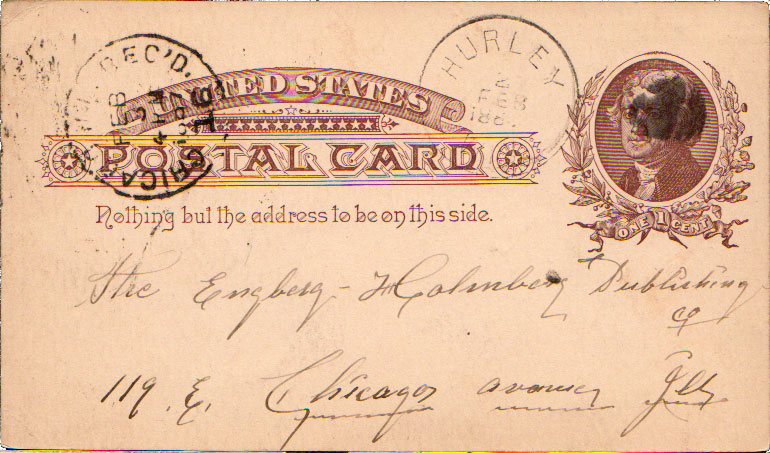 REC'D.
CHICAGO
FEB
HURLEY
UNITED STATES
POSTAL CARD
ONE 1 CENT
Nothing but the address to be on this side.
The Engberg-Holmberg Publishing
Co
119 E. Chicago avanue Ills